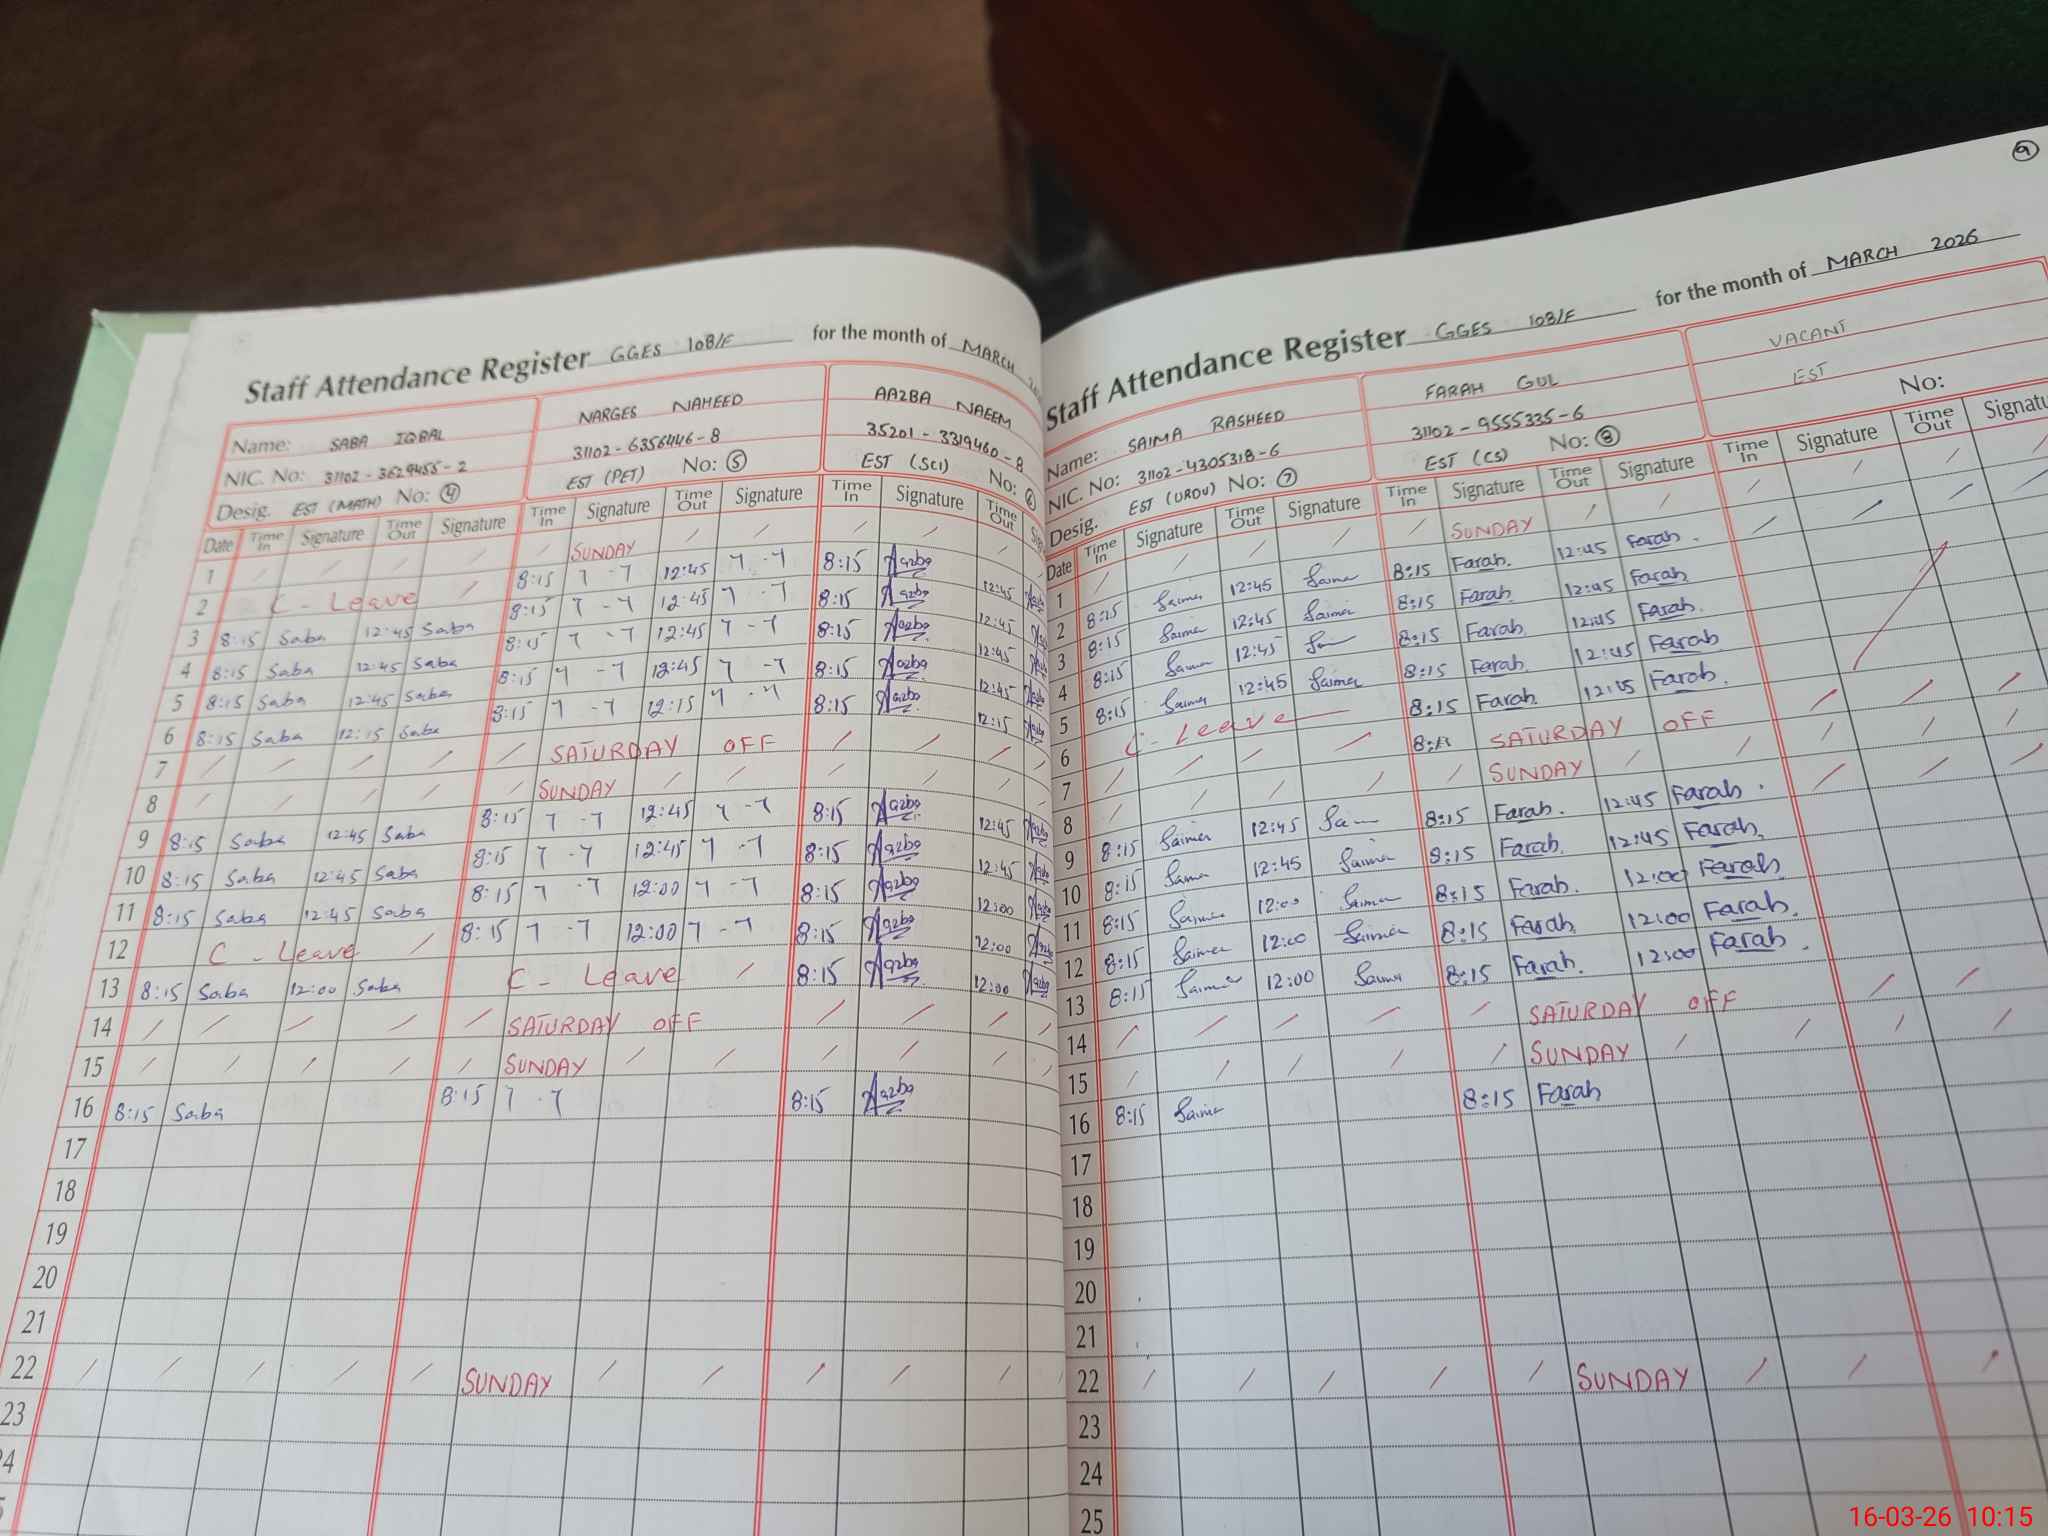 Staff Attendance Register GGES 108/F for the month of MARCH
Name: SABA IQBAL NARGES NAHEED AAZBA NAEEM
NIC. No: 31102-3629455-2 31102-6356446-8 35201-3319460-8
Desig. EST (MATH) No: 4 EST (PET) No: 5 EST (SCI) No: 6
Date Time In Signature Time Out Signature Time In Signature Time Out Signature Time In Signature Time Out
1 / / / / / SUNDAY / / / / /
2 C - Leave / 8:15 12:45 8:15 Aazba 12:45
3 8:15 Saba 12:45 Saba 8:15 12:45 8:15 Aazba 12:45
4 8:15 Saba 12:45 Saba 8:15 12:45 8:15 Aazba 12:45
5 8:15 Saba 12:45 Saba 8:15 12:45 8:15 Aazba 12:45
6 8:15 Saba 12:15 Saba 8:15 12:15 8:15 Aazba 12:15
7 / / / / / SATURDAY OFF / / /
8 / / / / / SUNDAY / / / / /
9 8:15 Saba 12:45 Saba 8:15 12:45 8:15 Aazba 12:45
10 8:15 Saba 12:45 Saba 8:15 12:45 8:15 Aazba 12:45
11 8:15 Saba 12:45 Saba 8:15 12:00 8:15 Aazba 12:00
12 C - Leave / 8:15 12:00 8:15 Aazba 12:00
13 8:15 Saba 12:00 Saba C - Leave / 8:15 Aazba 12:00
14 / / / / / SATURDAY OFF / / / /
15 / / / / / SUNDAY / / / / /
16 8:15 Saba 8:15 8:15 Aazba
17
18
19
20
21
22 / / / / / SUNDAY / / / / /
23
9
Staff Attendance Register GGES 108/F for the month of MARCH 2026
Name: SAIMA RASHEED FARAH GUL VACANT
NIC. No: 31102-4305318-6 31102-9555335-6 EST
Desig. EST (URDU) No: 7 EST (CS) No: 8 No:
Date Time In Signature Time Out Signature Time In Signature Time Out Signature Time In Signature Time Out
1 / / / / / SUNDAY / / / / /
2 8:15 Saima 12:45 Saima 8:15 Farah. 12:45 Farah.
3 8:15 Saima 12:45 Saima 8:15 Farah. 12:45 Farah
4 8:15 Saima 12:45 8:15 Farah 12:45 Farah.
5 8:15 Saima 12:45 Saima 8:15 Farah. 12:45 Farah
6 C - Leave 8:15 Farah. 12:15 Farah.
7 / / / / SATURDAY OFF / / /
8 / / / / / SUNDAY / / / / /
9 8:15 Saima 12:45 8:15 Farah. 12:45 Farah.
10 8:15 Saima 12:45 Saima 8:15 Farah. 12:45 Farah.
11 8:15 Saima 12:00 Saima 8:15 Farah. 12:00 Farah
12 8:15 Saima 12:00 Saima 8:15 Farah. 12:00 Farah.
13 8:15 Saima 12:00 Saima 8:15 Farah. 12:00 Farah.
14 / / / / / SATURDAY OFF / /
15 / / / / / SUNDAY / / / /
16 8:15 Saima 8:15 Farah
17
18
19
20
21
22 / / / / / SUNDAY / / /
23
24
25
16-03-26 10:15